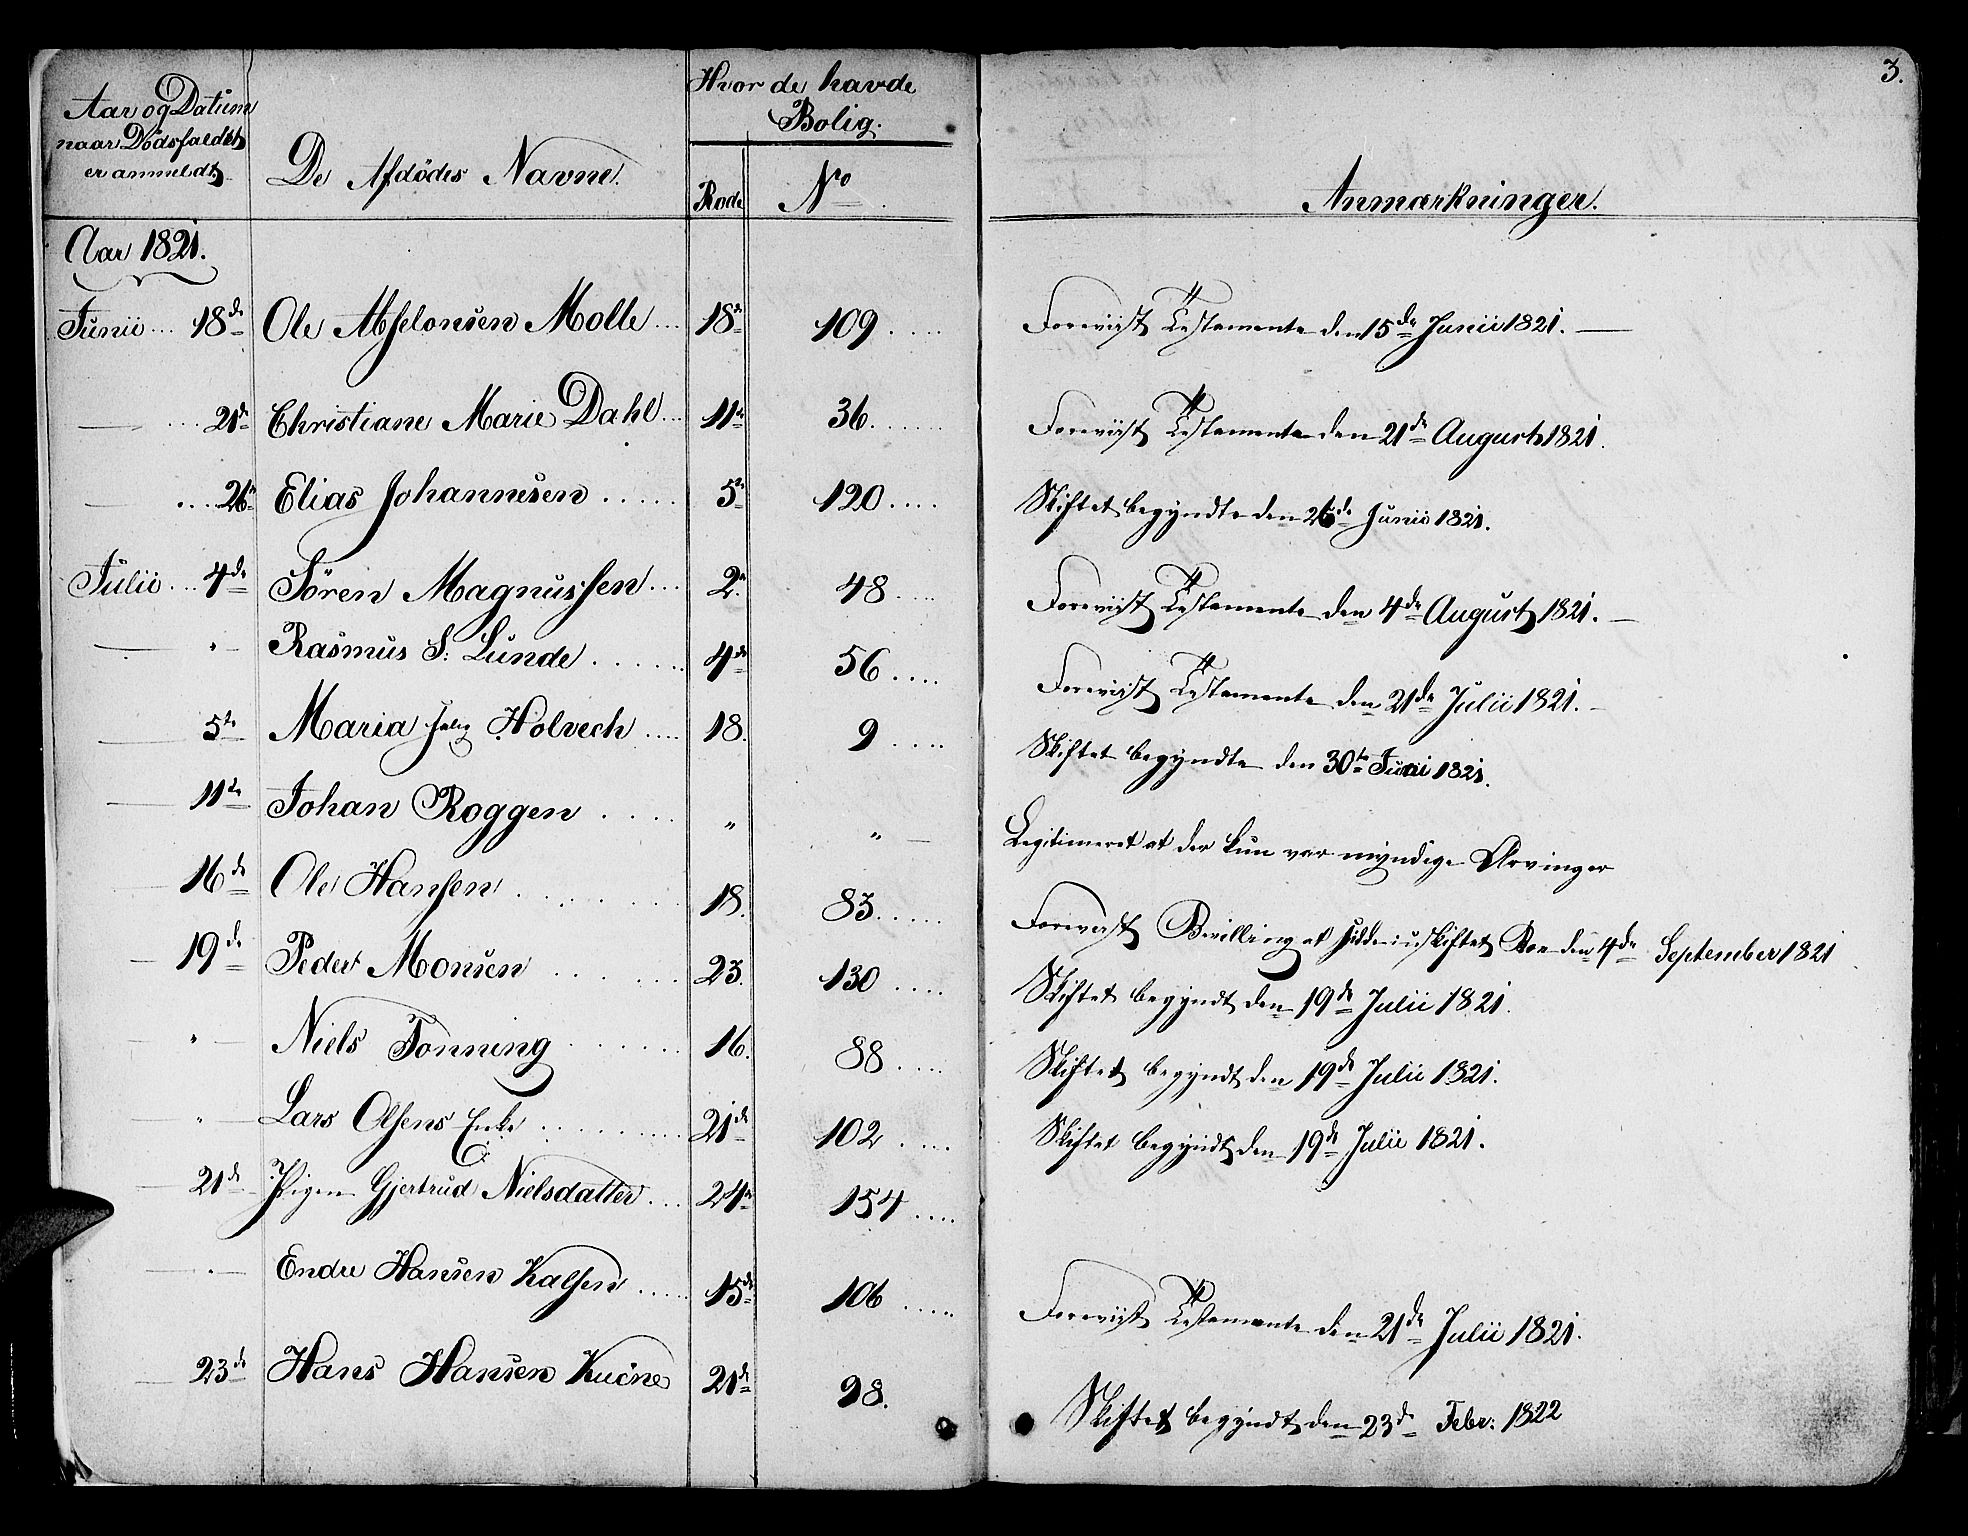 3.
Aar og Datum
naar Dødsfaldet
er anmeldt.
De Afdödes Navne.
Hvor de havde
Bolig.
Rode
No.
Anmærkninger.
Aar 1821.
Junii .... 18de Ole Abselonsen Molle .... 18de 109 ..... Foreviist Testamente den 15de Junii 1821. —
— .... 21de Christiane Marie Dahl ... 11te 36 ...... Foreviist Testamente den 21de August 1821.
— .... 26de Elias Johannesen ..... 5te 120 .... Skiftet begyndte den 26de Junii 1821.
Julii ... 4de Sören Magnussen ... 2. 48 .... Foreviist Testamente den 4de August 1821. —
— " — Rasmus S: Lunde ...... 4de 56 .... Foreviist Testamente den 21de Julii 1821. —
— 5te Maria Holvech .... 18. 9 .... Skiftet begyndte den 30te Juni 1821.
— 11te Johan Roggen .... " " — Legitimeret at der kun var myndige Arvinger
— 16de Ole Hansen ....... 18. 83 ..... Foreviist Bevilling at sidde i uskiftet Boe den 4de September 1821
— 19de Peder Monsen ...... 23. 130 .... Skiftet begyndt den 19de Julii 1821.
— " — Niels Tonning ...... 16. 88 .... Skiftet begyndt den 19de Julii 1821.
— " — Lars Olsens Enke ........ 21de 102 .... Skiftet begyndt den 19de Julii 1821.
— 21de Pigen Gjertrud Nielsdatter ... 24de 154 ....
— " — Endre Hansen Kalsen ..... 15de 106 ..... Foreviist Testamente den 21de Julii 1821.
— 23de Hans Hansen 21de 98. Skiftet begyndt den 23de Febr: 1822